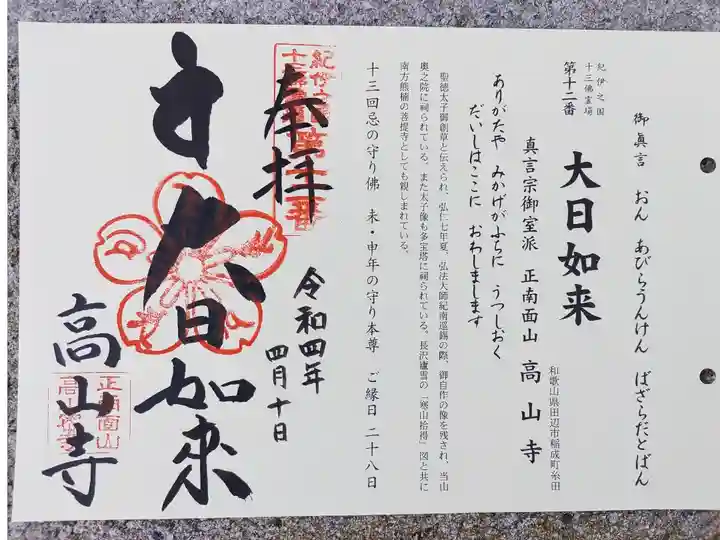 御眞言　おん　あびらうんけん　ばざらだとばん
紀伊之国
十三佛霊場
第十二番
大日如来
真言宗御室派　正南面山　高山寺
和歌山県田辺市稲成町糸田
ありがたや　みかげがふちに　うつしおく
だいしはここに　おわしまします
聖徳太子御創草と伝えられ、弘仁七年夏、弘法大師紀南巡錫の際、御自作の像を残され、当山
奥之院に祠られている。また太子像も多宝塔に祠られている。長沢廬雪の「寒山拾得」図と共に
南方熊楠の菩提寺としても親しまれている。
十三回忌の守り佛　未・申年の守り本尊　ご縁日　二十八日
奉拝
令和四年
四月十日
大日如来
高山寺
正南面山
高山寺